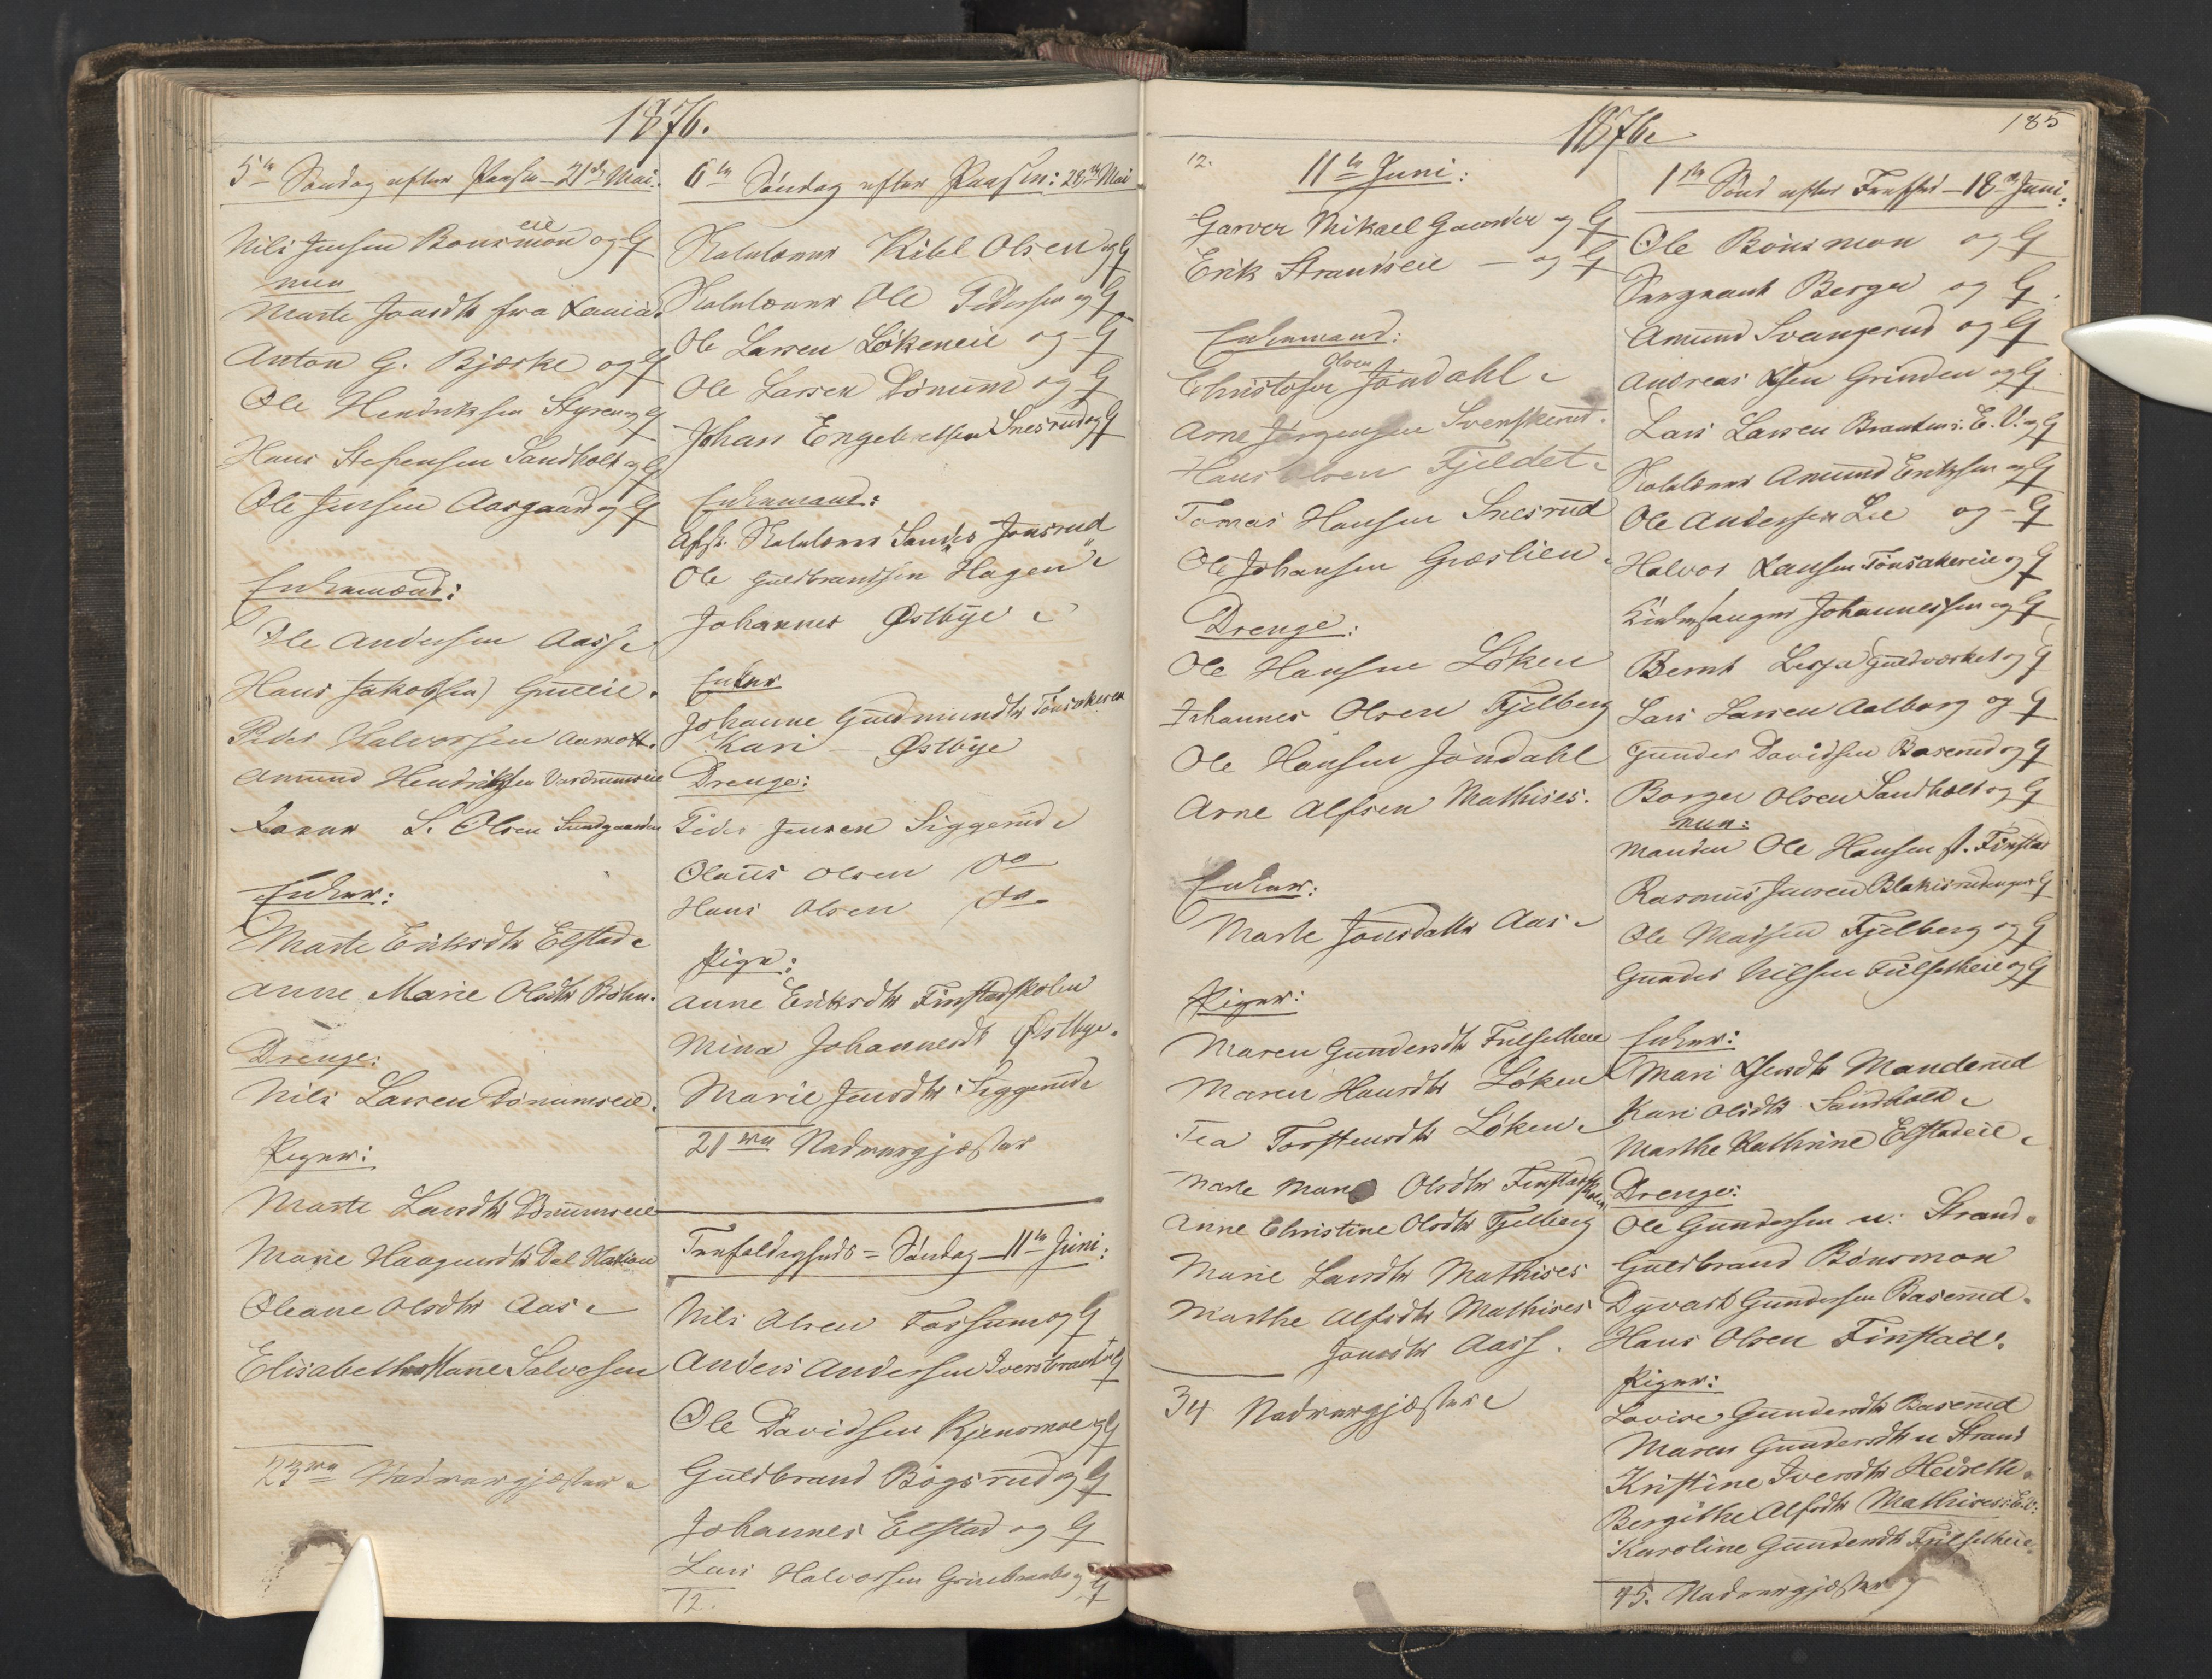 1876.
5te Søndag efter Paaske - 21de Mai.
Nils Jensen Bonsmoneie og G
men
Marte Jonsdtr fra
Anton G. Bjerke og G
Ole Hendriksen Styren og G
Hans Stefensen Sandholt og G
Ole Jensen Aasgaard og G
Enkemænd:
Ole Andersen Aas
Hans Jakobsen
Peder Halvorsen Aamott.
Amund Hendriksen
L. Olsen Sundgaarden
Enker:
Marte Eriksdtr Elstad
Anne Marie Olsdtr Böhn.
Drenge:
Nils Larsen Dönumseie.
Piger:
Marte Larsdtr Dönumseie
Marie Haagensdtr Dal Station
Oleane Olsdtr Aas
Elisabeth Hanne Salvesen
23 Nadvergjæster
6te Søndag efter Paasken: 28de Mai
Skolelærer Kitil Olsen og G
Skolelærer Ole Pedersen og G
Ole Larsen Løkeneie og G
Ole Larsen Dönum og G
Johan Engebretsen Snesrud og G
Enkemænd:
Afsk. Skolelærer Sander Jonsrud
Ole Guldbrandsen Hagen
Johannes Østbye
Enker
Johanne Gudmundsdtr Tönsakeren
Kari - Østbye
Drenge:
Peder Jensen Siggerud
Olaus Olsen Do
Hans Olsen Do
Piger:
Anne Eriksdtr Finstadskolen
Mina Johannesdtr Østbye.
Marie Jensdtr Siggerud
21 Nadvergjæster
Trefoldigheds = Søndag - 11te Juni:
Nils Olsen Fossum og G
Anders Andersen Iversbraat og G
Ole Davidsen Kjensmoe og G
Guldbrand Bøgsrud og G
Johannes Elstad og G
Lars Halvorsen og G
12.
1876
185
12.
11te Juni:
Garver Mikael Gaarder og G
Erik Strandseie - og G
Enkemænd:
Christofer Olsen Jöndahl
Arne Jørgensen Svenskerud.
Hans Olsen Fjeldet
Tomas Hansen Snesrud
Ole Johansen Græslien
Drenge:
Ole Hansen Løken
Johannes Olsen Fjelberg
Ole Hansen Jöndahl
Arne Alfsen Mathises.
Enker:
Marte Jonsdatter Aas
Piger:
Maren Gundersdtr Fulselheie
Maren Hansdtr Løken
Tea Torstensdtr Løken
Olsdtr Finstadskolen
Anne Christine Olsdtr Fjelberg
Marie Larsdtr Mathises
Marthe Alfsdtr Mathises
Jonsdtr Aas.
34 Nadvergjæster
1ste Sønd efter Trefhed - 18de Juni.
Ole Bönsmon og G
Sergeant Berger og G
Amund Svangerud og G
Andreas Grinden og G
Lars Larsen Braaten E. V. og G
Skolelærer Amund Eriksen og G
Ole Andersen Lie og G
Halvor Larsen Tönsakereie og G
Kirkesanger Johannessen og G
Bernt Lesja Guldværket og G
Lars Larsen Aalborg og G
Gunder Davidsen Baserud og G
Borger Olsen Sandholt og G
men:
Manden Ole Hansen f. Finstad
Rasmus Jensen og G
Ole Madsen Fjelberg og G
Gunder Nilsen Fulselheie og G
Enker:
Mari Manderud
Kari Olsdtr Sandholt
Marthe Kathrine Elstadeie
Drenge:
Ole Gundersen n. Strand.
Guldbrand Bönsmon
Dyvart Gundersen Baserud.
Hans Olsen Finstad.
Piger:
Lovise Gundersdtr Baserud
Maren Gundersdtr n Strand
Kristine Iversdtr
Bergithe Alfsdtr Mathises E.V.
Karoline Gundersdtr Fulselheie
45. Nadvergjæster